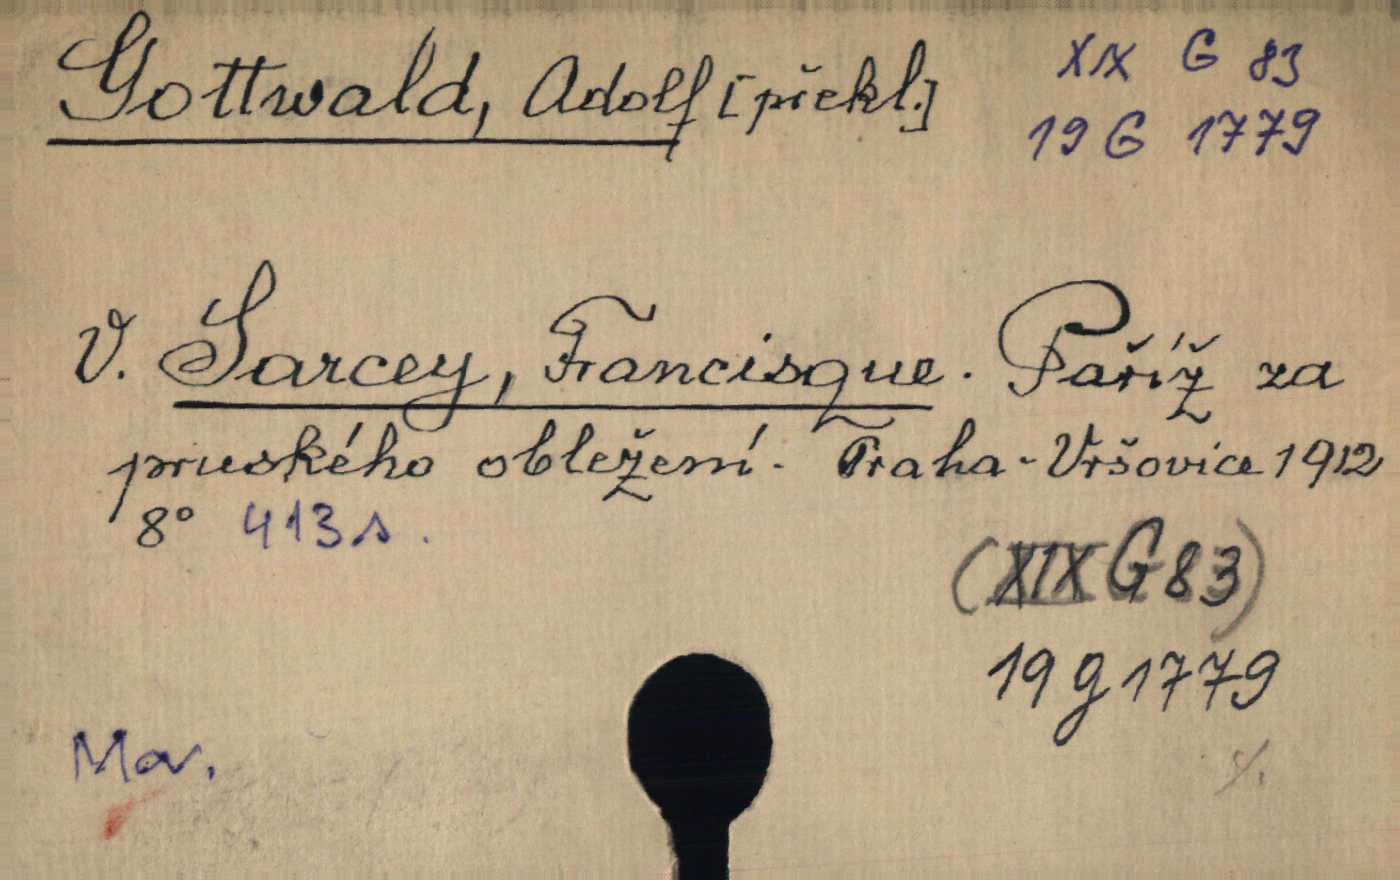 Gottwald, Adolf [překl.]
XIX G 83
19 G 1779
V. Sarcey, Francisque. Paříž za
pruského obležení. Praha-Vršovice 1912
8° 413 s.
(XIX G 83)
19 g 1779
Mor.